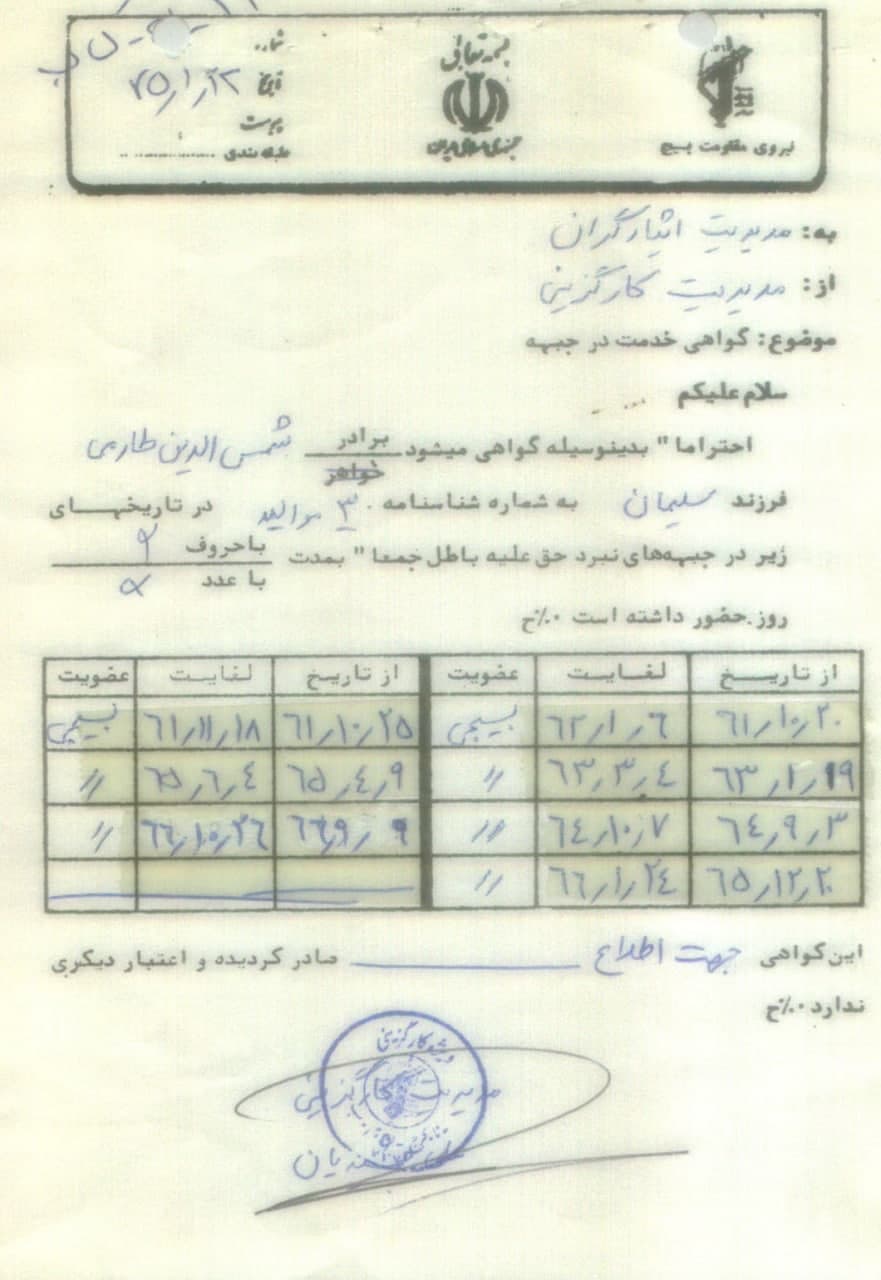 بسمه تعالی
جمهوری اسلامی ایران
نیروی مقاومت بسیج
شماره
تاریخ ۷۵/۱/۲۲
پیوست
طبقه بندی ............
به: مدیریت ایثارگران
از: مدیریت کارگزینی
موضوع: گواهی خدمت در جبهه
سلام علیکم
احتراما" بدینوسیله گواهی میشود برادر شمس الدین طارمی
خواهر
فرزند سلیمان به شماره شناسنامه ۳ موالید در تاریخهای
زیر در جبهه‌های نبرد حق علیه باطل جمعا" بمدت باحروف
با عدد
روز.حضور داشته است ۰٪ح
از تاریخ لغایت عضویت از تاریخ لغایت عضویت
۶۱/۱۰/۲۰ ۶۲/۱/۶ بسیجی ۶۱/۱۰/۲۵ ۶۱/۱۱/۱۸ بسیجی
۶۳/۱/۱۹ ۶۳/۳/۴ // ۶۵/۴/۹ ۶۵/۶/۴ //
۶۴/۹/۳ ۶۴/۱۰/۷ // ۶۶/۹/۹ ۶۶/۱۰/۲۶ //
۶۵/۱۲/۲۰ ۶۶/۱/۲۴ //
این گواهی جهت اطلاع صادر گردیده و اعتبار دیگری
ندارد ۰٪ح
مدیریت کارگزینی